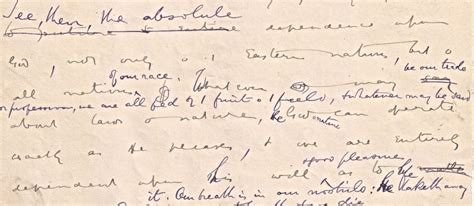 See then, the absolute
dependence upon
God, not only of Eastern nations, but of
all nations of our race. Whatever may be our trade
or profession, we are all fed of fruit of field, & whatever may be said
about laws of nature, God can operate
exactly as He pleases, & we are entirely
dependent upon His will as to good pleasure
it. Our breath is in our nostrils: He taketh away